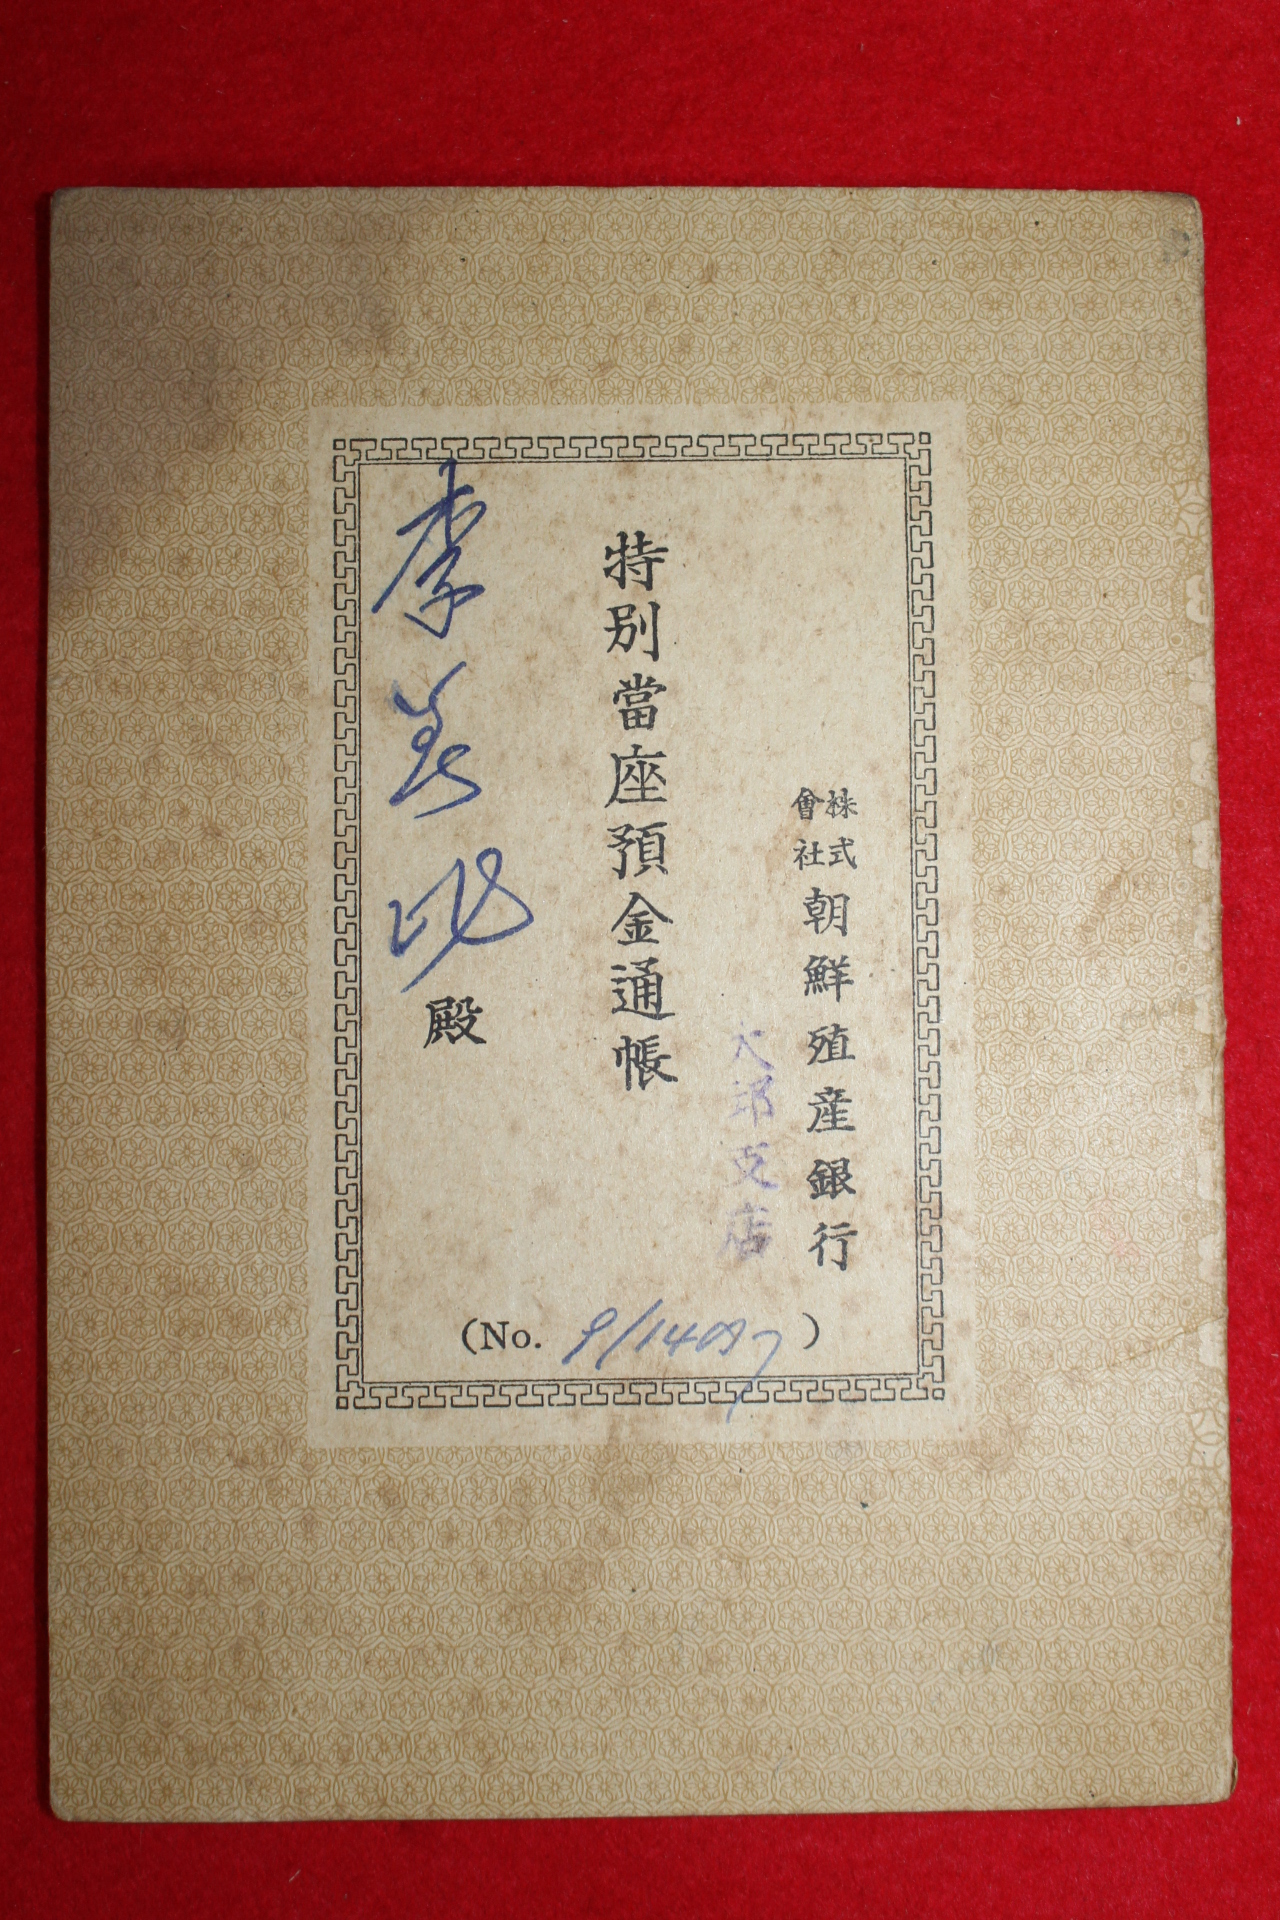 株式會社朝鮮殖産銀行
大邱支店
特別當座預金通帳
李 殿
(No. 9/14 )